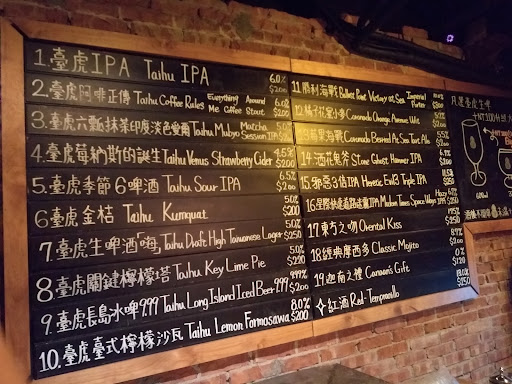 1.臺虎IPA Taihu IPA 6.0%
2.臺虎阿啡正傳 Taihu Coffee Rules Everything Around Me Coffee Stout 6.0% $200
3.臺虎六甄抹茶印度淡色愛爾 Taihu Mubyo Matcha Session IPA
4.臺虎莓納斯的誕生 Taihu Venus Strawberry Cider 4.5% $200
5.臺虎季節6啤酒 Taihu Sour IPA 6.5% $200
6.臺虎金桔 Taihu Kumquat 5.0% $200
7.臺虎生啤酒「嗨」Taihu Draft High Taiwanese Lager 5.0% $250
8.臺虎關鍵檸檬塔 Taihu Key Lime Pie 5.0% $220
9.臺虎長島冰啤9.99 Taihu Long Island Iced Beer 9.99 9.99% $200
10.臺虎臺式檸檬沙瓦 Taihu Lemon Formosawa 8.0% $200
11.勝利海戰 Ballast Point Victory at Sea Imperial Porter
12. Coronado Orange Avenue Wit
13. 莓果海戰 Coronado Berried At Sea Tart Ale 5.5%
14. Stone Ghost Hammer IPA
15.邪惡3倍IPA Heretic Evil3 Triple IPA
16. Modern Times Space Ways Hazy IPA 6.7% $250
17.東方之吻 Oriental Kiss
18.經典摩西多 Classic Mojito
19.迦南之禮 Canaan's Gift
紅酒 Red-Tempranillo $250